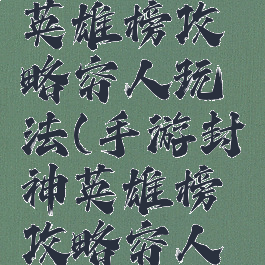 英雄榜攻
略穷人玩
法(手游封
神英雄榜
攻略穷人